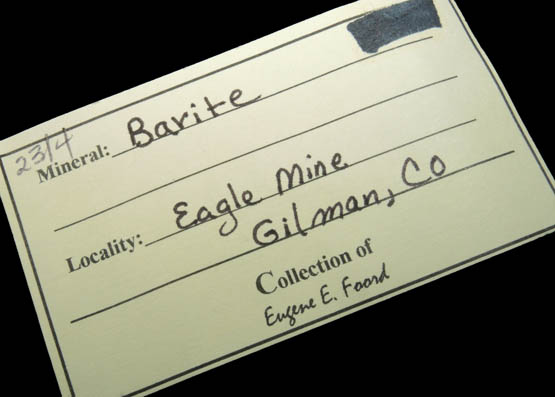 23/4
Mineral: Barite
Locality: Eagle Mine
Gilman, CO
Collection of
Eugene E. Foord